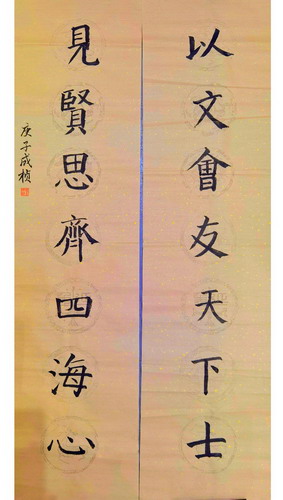 以文會友天下士
見賢思齊四海心
庚子成楨